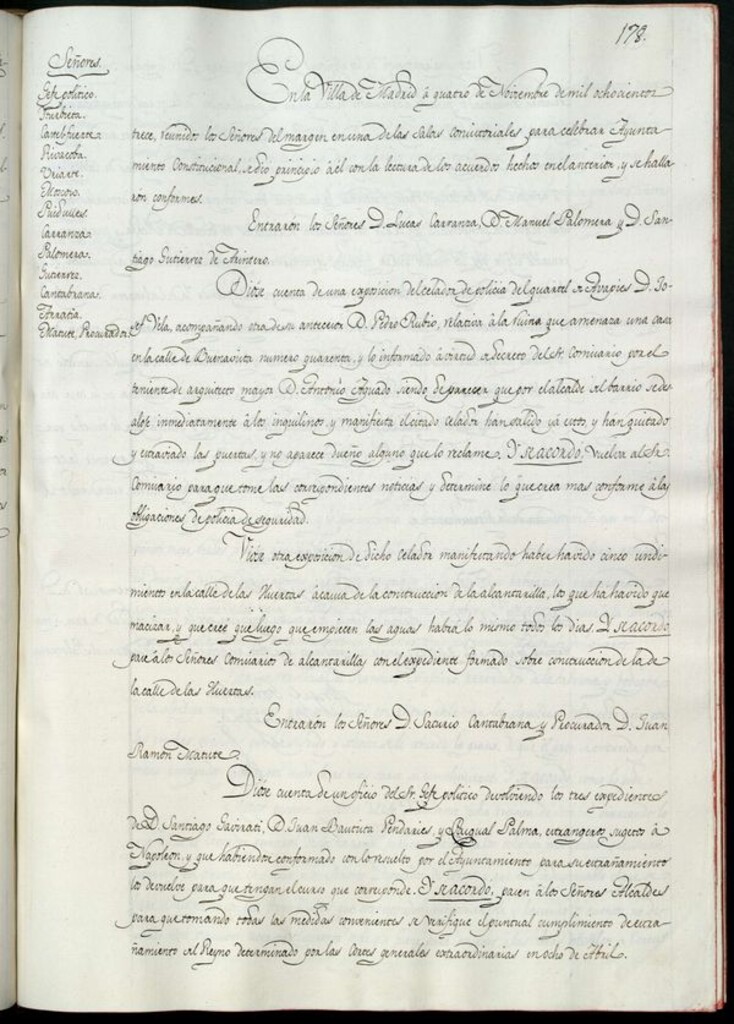 178.
Señores.
Gefe politico.
Yturbieta.
Castelfuerte.
Rivacoba.
Uriarte.
Moscoso.
Puidulles.
Carranza.
Palomera.
Gutierrez.
Cantabrana.
Matute, Procurador.
En la Villa de Madrid á quatro de Noviembre de mil ochocientos
trece, reunidos los Señores del margen en una de las Salas Consistoriales para celebrar Ayunta-
miento Constitucional, se dio principio á él con la lectura de los acuerdos hechos en el anterior, y se halla-
rón conformes.
Entrarón los Señores D. Lucas Carranza, D. Manuel Palomera y D. San-
tiago Gutierrez de Arintero.
Diose cuenta de una exposicion del celador de policia del quartel de Avapies D. Jo-
sef Vela, acompañando otra de su antecesor D. Pedro Rubio, relativa á la ruina que amenaza una casa
en la calle de Buenavista numero quarenta, y lo informado á virtud de Decreto del Sr. Comisario por el
teniente de arquitecto mayor D. Antonio Aguado siendo de parecer que por el alcalde del barrio se des-
aloje inmediatamente á los inquilinos, y manifiesta el citado celador han salido ya estos, y han quitado
y extraviado las puertas, y no aparece dueño alguno que lo reclame. Y se acordó, vuelva al Sr.
Comisario para que tome las correspondientes noticias y determine lo que crea mas conforme á las
obligaciones de policia de seguridad.
Viose otra exposicion de dicho celador manifestando haber havido cinco undi-
mientos en la calle de las Huertas á causa de la construccion de la alcantarilla, los que há havido que
macizar, y que cree que luego que empiecen las aguas habrá lo mismo todos los dias. Y se acordó,
pase á los Señores Comisarios de alcantarillas con el expediente formado sobre construccion de la de
la calle de las Huertas.
Entrarón los Señores D. Saturio Cantabrana y Procurador D. Juan
Ramon Matute.
Diose cuenta de un oficio del Sr. Gefe politico devolviendo los tres expedientes
de D. Santiago Gavirati, D. Juan Bautista Pendaries, y Pasqual Palma, extrangeros sugetos á
Napoleon, y que habiendose conformado con lo resuelto por el Ayuntamiento para su extrañamiento
los devuelve para que tengan el curso que corresponde. Y se acordó, pasen á los Señores Alcaldes
para que tomando todas las medidas convenientes se verifique el puntual cumplimiento de extra-
ñamiento del Reyno determinado por las Cortes generales extraordinarias en ocho de Abril.